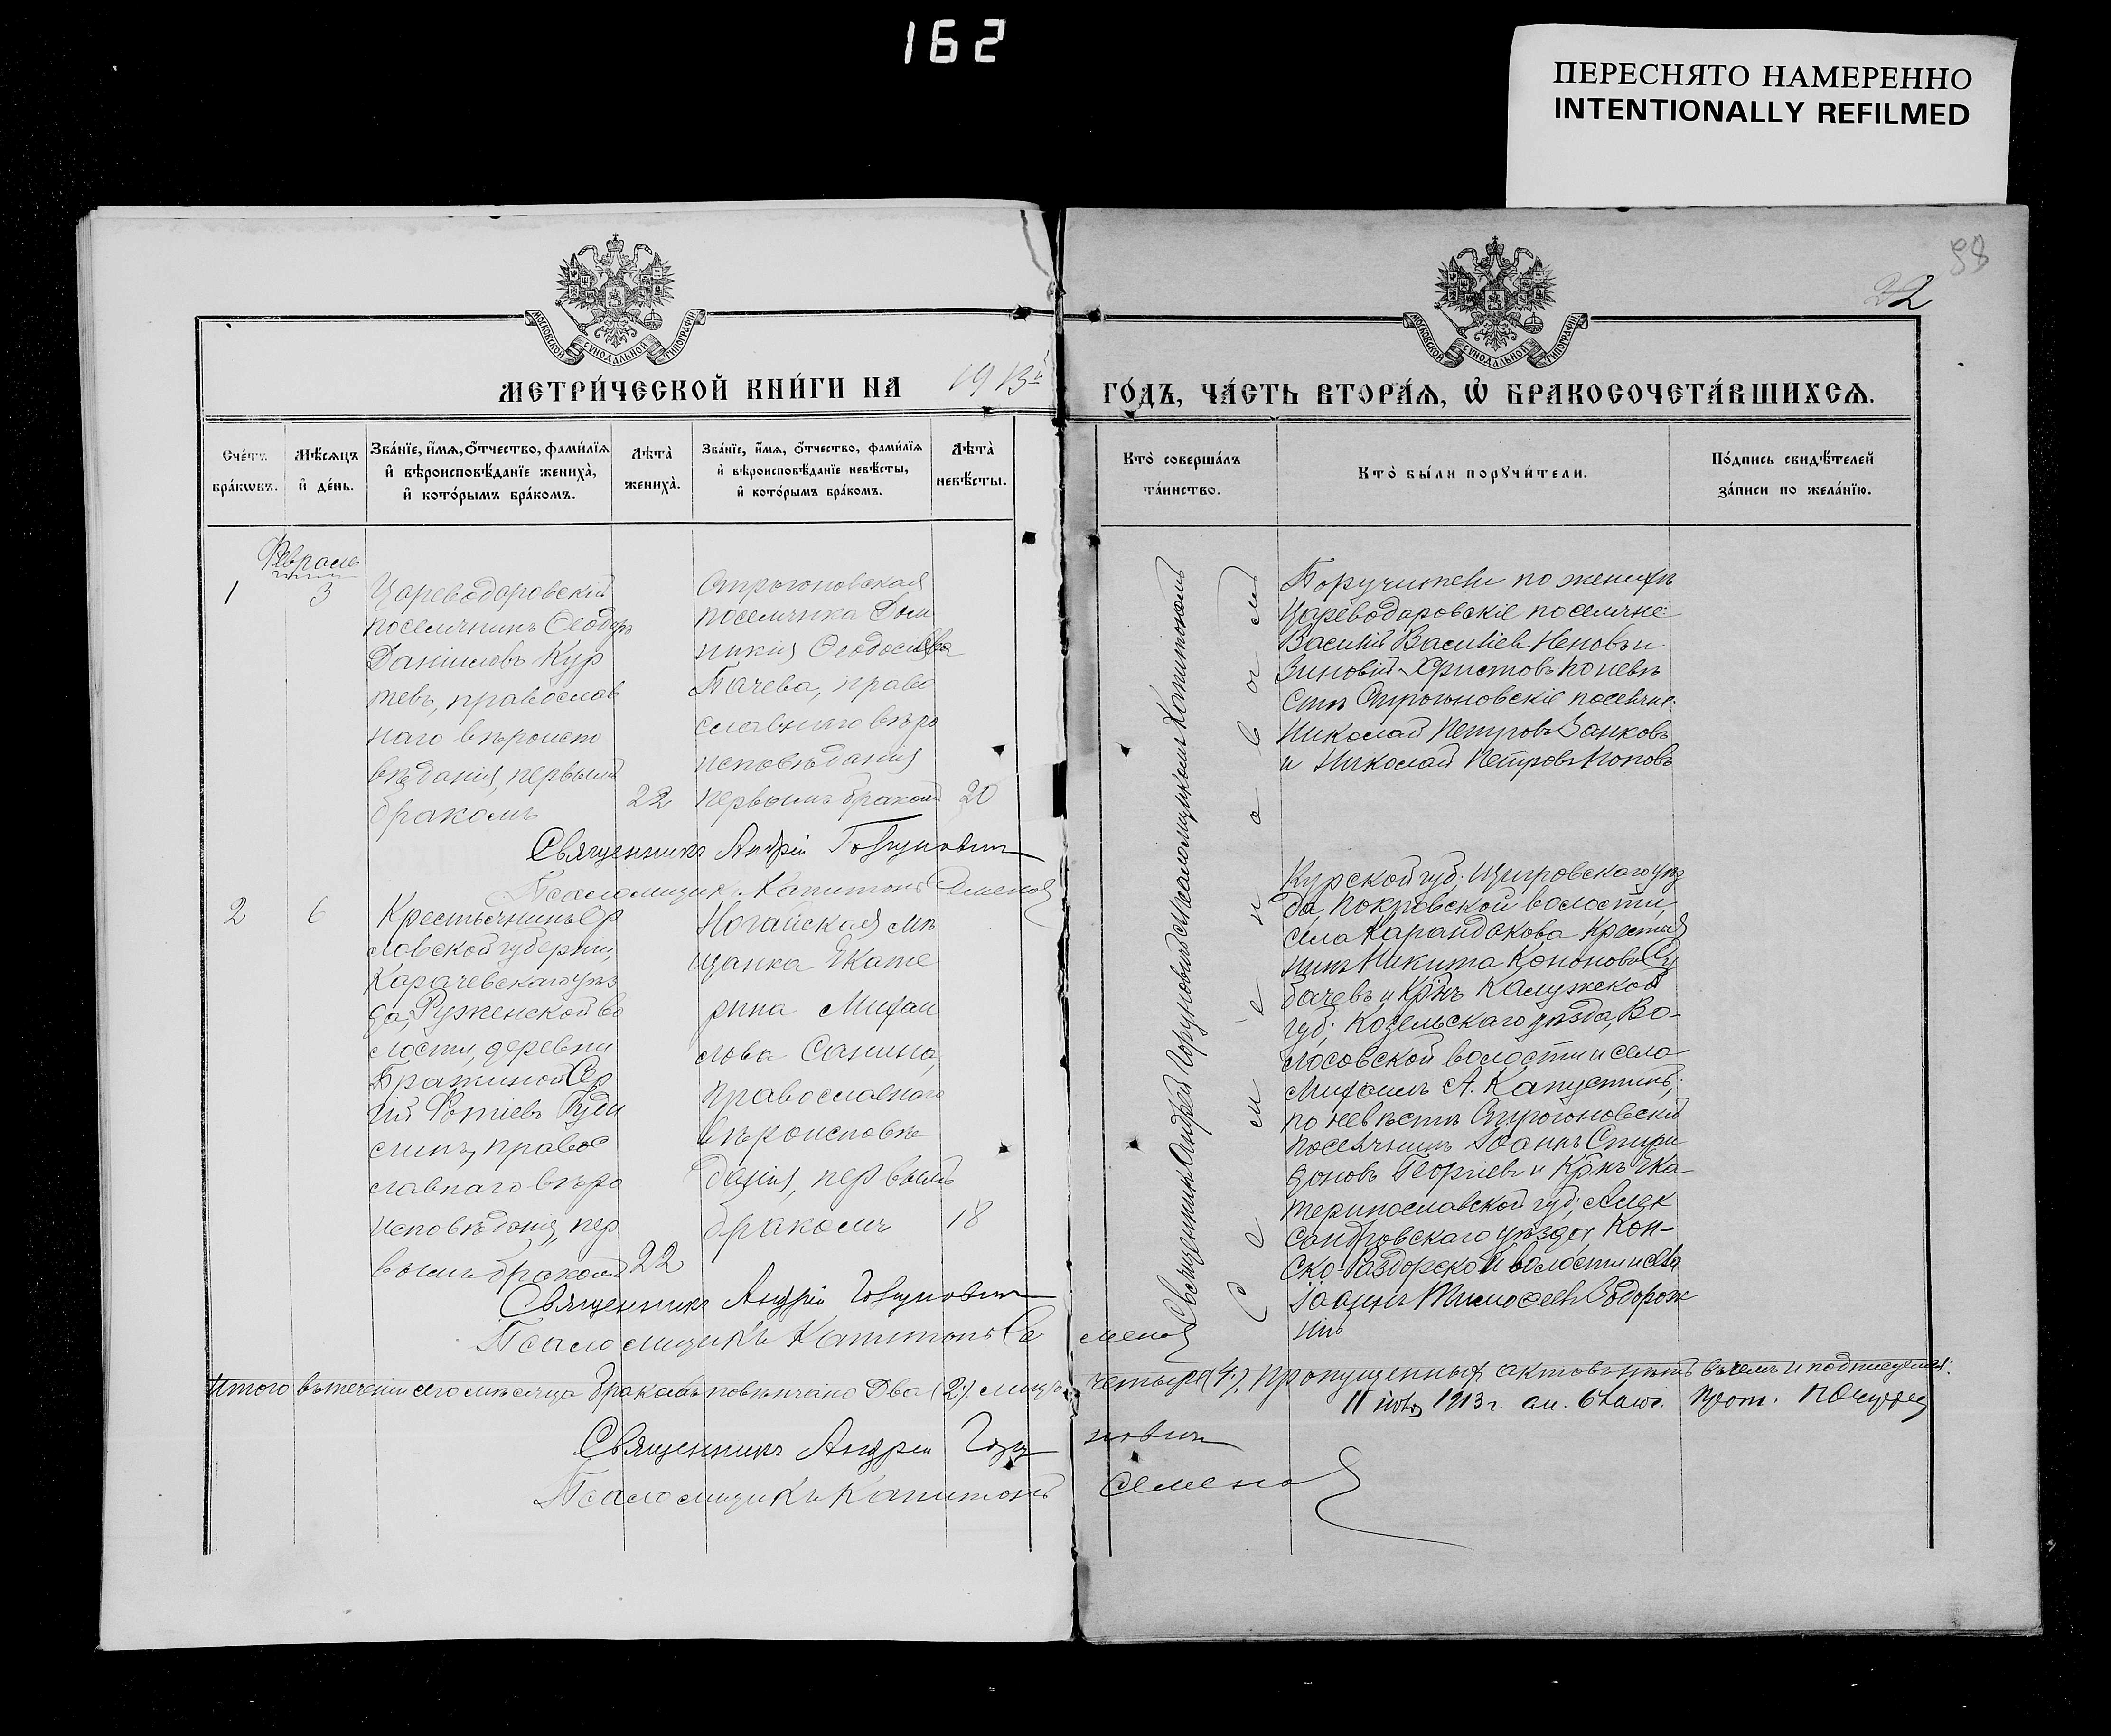 162
ПЕРЕСНЯТО НАМЕРЕННО
INTENTIONALLY REFILMED
88
22
МОСКОВСКОЙ СУНОДАЛЬНОЙ ТИПОГРАФІИ
МОСКОВСКОЙ СУНОДАЛЬНОЙ ТИПОГРАФІИ
МЕТРИ́ЧЕСКОЙ КНИ́ГИ НА 1913й
ГО́ДЪ, ЧА́СТЬ ВТОРА́Ѧ, Ѽ БРАКОСОЧЕТА́ВШИХСѦ.
Сче́тъ бра́кѡвъ.
Мѣ́сѧцъ и҆ де́нь.
Зва́нїе, и҆́мѧ, ѻ҆́тчество, фами́лїѧ
и҆ вѣроисповѣ́данїе жениха̀,
и҆ кото́рымъ бра́комъ.
Лѣта̀ жениха̀.
Зва́нїе, и҆́мѧ, ѻ҆́тчество, фами́лїѧ
и҆ вѣроисповѣ́данїе невѣ́сты,
и҆ кото́рымъ бра́комъ.
Лѣта̀ невѣ́сты.
Кто̀ соверша́лъ
та́инство.
Кто̀ бы́ли порꙋчи́тели.
По́дпись свидѣ́телей
за́писи по жела́нїю.
Февраль
1
3
Цареводаровскій
поселянинъ Ѳеодоръ
Даніиловъ Кур
тевъ, православ
наго вѣроиспо
вѣданія, первымъ
бракомъ
22
Строгоновская
поселянка Дом
никія Ѳеодосіева
Тачева, право
славнаго вѣро
исповѣданія
первымъ бракомъ
20
Поручители по женихѣ
Цареводаровскіе поселяне:
Василій Василіев Неновъ и
Зиновій Христовъ Поневъ
Николай Петровъ Занковъ
и Николай Петровъ Поповъ
Священникъ Андрей
Псаломщикъ Капитонъ Семенов
2
6
Крестьянинъ Ор
ловской губерніи,
Карачевскаго уѣз
да, Руженской во
лости, деревни
Бражиной Сер
гій Фотіевъ
правос
лавнаго вѣро
исповѣданія, пер
вымъ бракомъ
22
Ногайская мѣ
щанка Екате
рина Михаи
лова Санина,
православнаго
вѣроисповѣ
данія, первымъ
бракомъ
18
Священникъ Андрей
съ псаломщикомъ Капитономъ
Семеновамъ
Курской губ. Щигровскаго уѣз
да, Покровской волости,
села Карандакова Крестья
нинъ Никита Кононовъ Су
бачевъ и Крнъ Калужской
губ. Козельскаго уѣзда, Во-
лосовской волости и села
Михаилъ А. Капустинъ;
по невѣстѣ Строгоновскій
поселянинъ Іоаннъ Спири
доновъ Георгіевъ и Крнъ Ека
теринославской губ. Алек
сандровскаго уѣзда, Кон-
ско-Раздорской волости и села
Іоаннъ Тимоѳеевъ
Священникъ Андрей
Псаломщикъ Капитонъ Се
менов
Итого въ теченіи сего мѣсяца браковъ повѣнчано Два (2.) лицъ четыре (4.), пропущенныхъ актовъ нѣтъ въ чемъ и подписуемся:
1913 г.
Священникъ Андрей
Псаломщикъ Капитонъ
Семенов